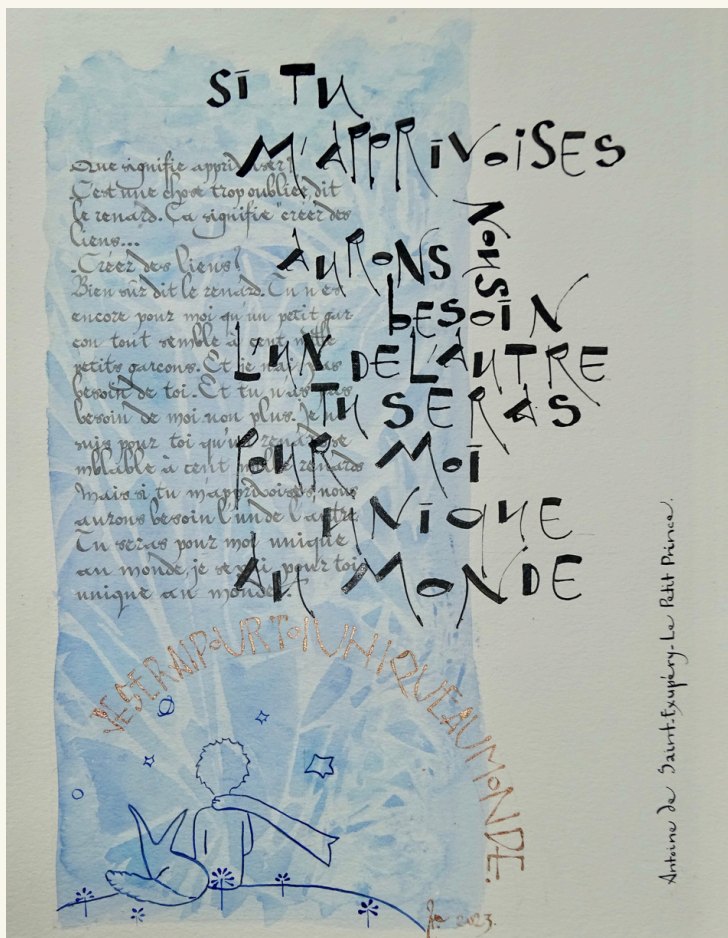 SI TU
M'APPRIVOISES
NOUS
AURONS
BESOIN
L'UN DE L'AUTRE
TU SERAS
POUR MOI
UNIQUE
AU MONDE
Que signifie apprivoiser?
C'est une chose trop oubliée, dit
le renard. Ça signifie "créer des
liens...
. Créer des liens?
Bien sûr dit le renard. Tu n'es
encore pour moi qu'un petit gar
çon tout semblable à cent mille
petits garçons. Et je n'ai pas
besoin de toi. Et tu n'as pas
besoin de moi non plus. Je ne
suis pour toi qu'un renard se
mblable à cent mille renards
Mais si tu m'apprivoises, nous
aurons besoin l'un de l'autre
Tu seras pour moi unique
au monde, je serai pour toi
unique au monde.
JE SERAI POUR TOI UNIQUE AU MONDE.
Antoine de Saint-Exupéry. Le Petit Prince.
2023.